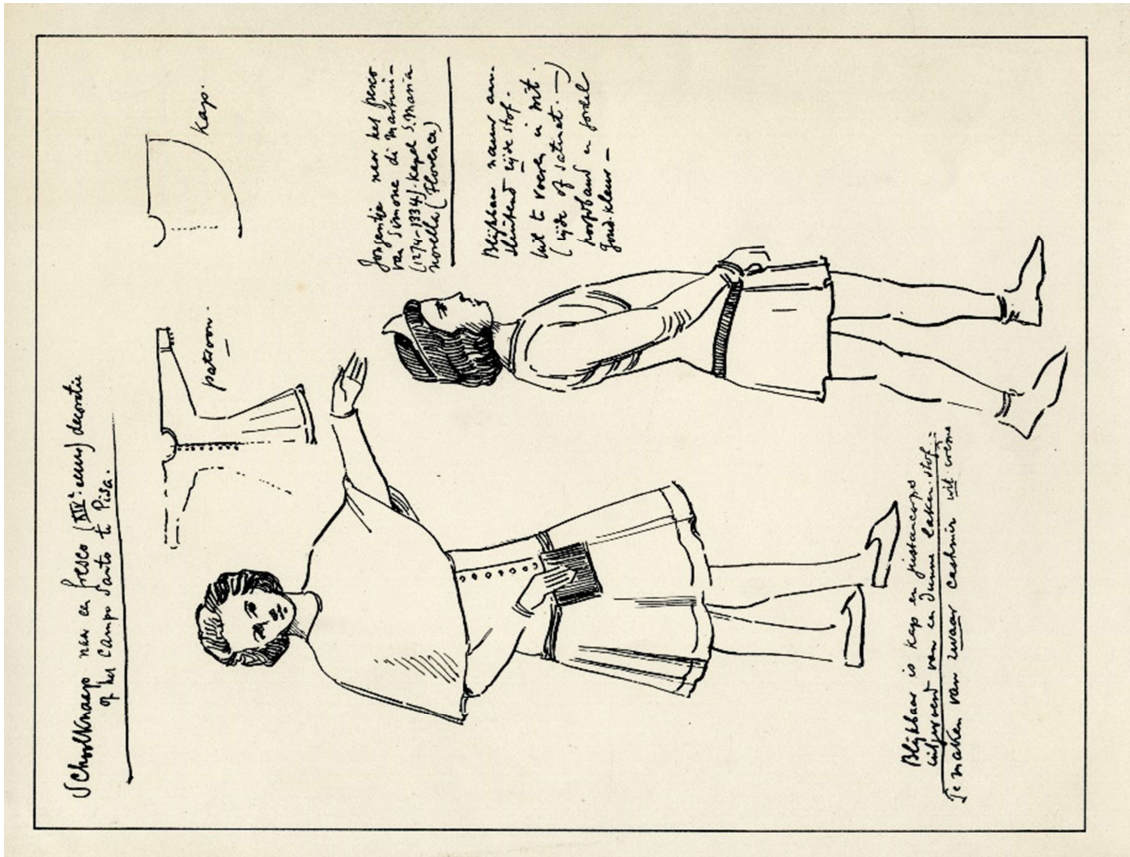 SchoolKnaap naar een fresco (XIVe eeuw) decoratie
of het Campo Santo te Pisa.
patroon.
kap.
Jongentje naar het fresco
van Simone di Martini
(1274-1334) kapel S. Maria
novella (Florence)
Blijkbaar nauw aan-
sluitend zijde stof.
uit te voeren in wit.
(zijde of satinet. —)
hoofdband en gordel
goud-kleur —
Blijkbaar is kap en justaucorps
uitgevoerd van een dunne laken-stof
Te maken van zwaar cashmir wit crème